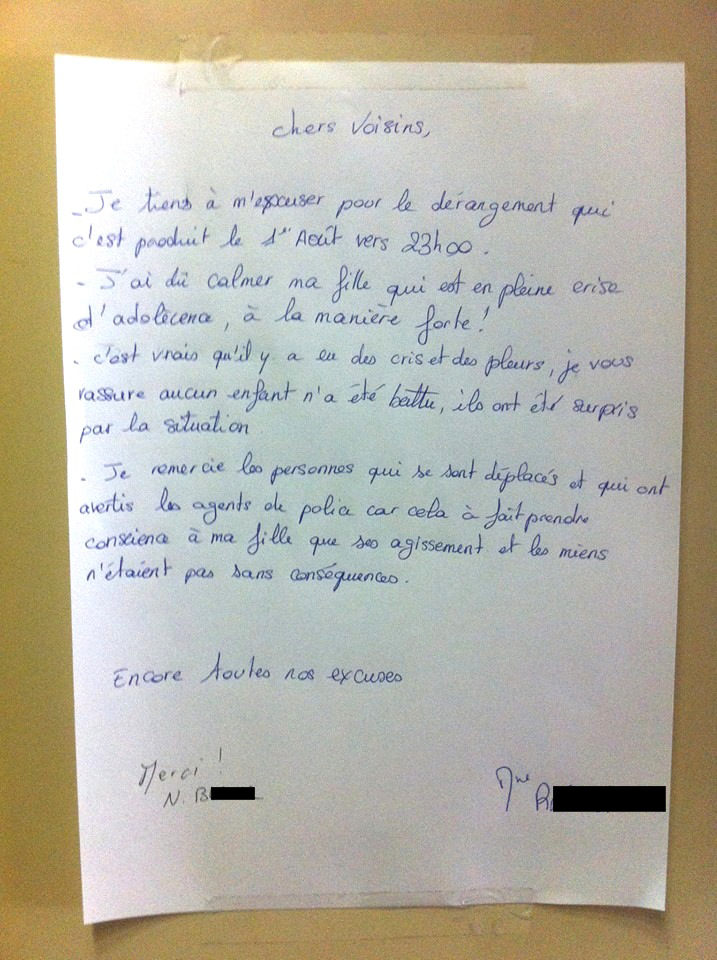 chers Voisins,
- Je tiens à m'excuser pour le dérangement qui
c'est produit le 1er Août vers 23h00.
- J'ai dû calmer ma fille qui est en pleine crise
d'adolècence, à la manière forte !
- c'est vrais qu'il y a eu des cris et des pleurs, je vous
rassure aucun enfant n'a été battu, ils ont été surpris
par la situation
- Je remercie les personnes qui se sont déplacés et qui ont
avertis les agents de police car cela à fait prendre
conscience à ma fille que ses agissement et les miens
n'étaient pas sans conséquences.
Encore toutes nos excuses
Merci !
N. B
Mme